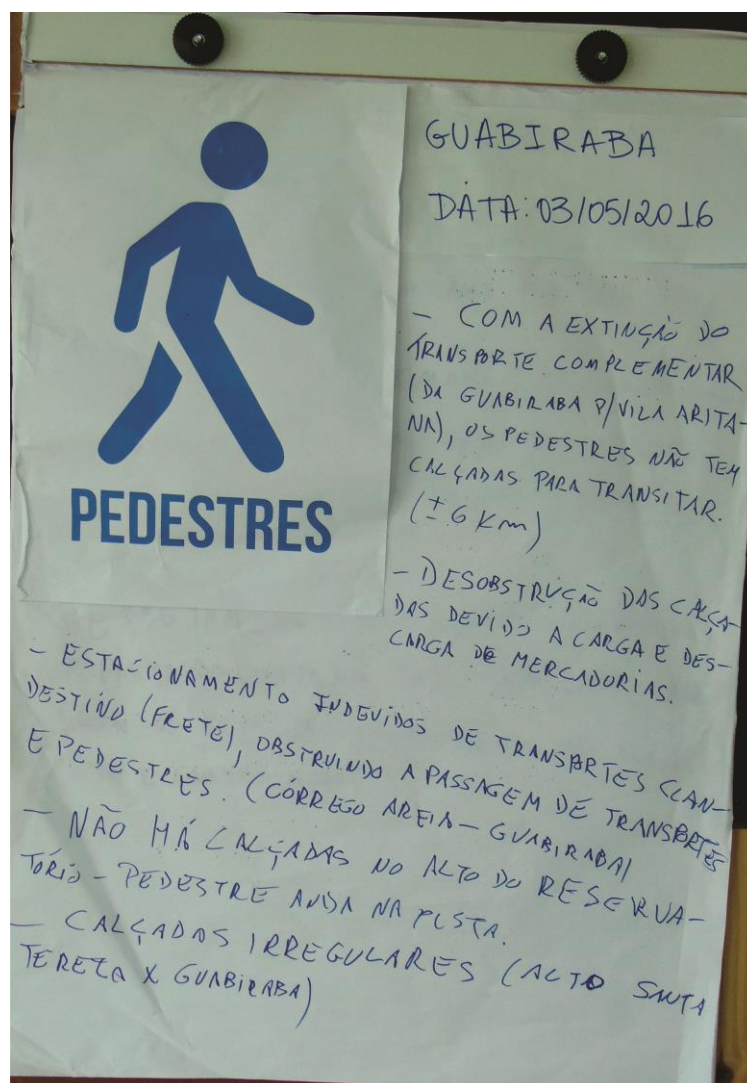 GUABIRABA
DATA: 03/05/2016
PEDESTRES
- COM A EXTINÇÃO DO
TRANSPORTE COMPLEMENTAR
(DA GUABIRABA P/VILA ARITA-
NA), OS PEDESTRES NÃO TEM
CALÇADAS PARA TRANSITAR.
(± 6 Km)
- DESOBSTRUÇÃO DAS CALÇA-
DAS DEVIDO A CARGA E DES-
CARGA DE MERCADORIAS.
- ESTACIONAMENTO INDEVIDOS DE TRANSPORTES CLAN-
DESTINO (FRETE), OBSTRUINDO A PASSAGEM DE TRANSPORTES
E PEDESTRES. (CÓRREGO AREIA - GUABIRABA)
- NÃO HÁ CALÇADAS NO ALTO DO RESERVA-
TÓRIO - PEDESTRE ANDA NA PISTA.
- CALÇADAS IRREGULARES (ALTO SANTA
TEREZA X GUABIRABA)